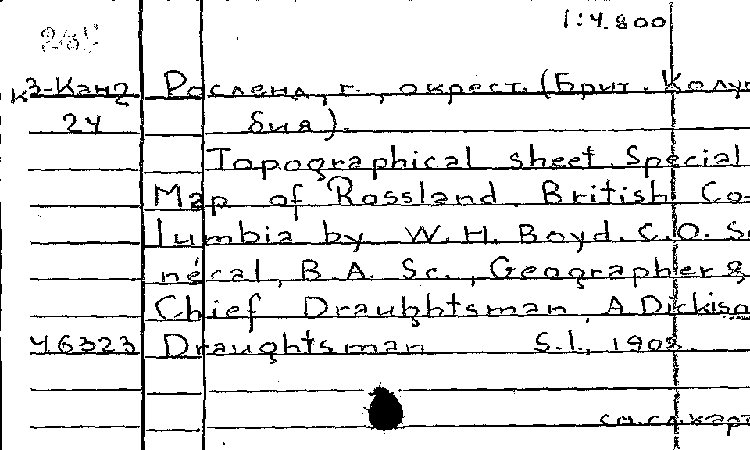 1:4.800
К3-Кан2 Росленд, г., окрест. (Брит. Колу
24 бия).
Topographical sheet. Special
Map of Rossland. British Co-
lumbia by W.H. Boyd. C.O. Se
nécal, B.A. Sc., Geographer &
Chief Draughtsman, A. Dickison
46323 Draughtsman S.l., 190
см.сл.карт